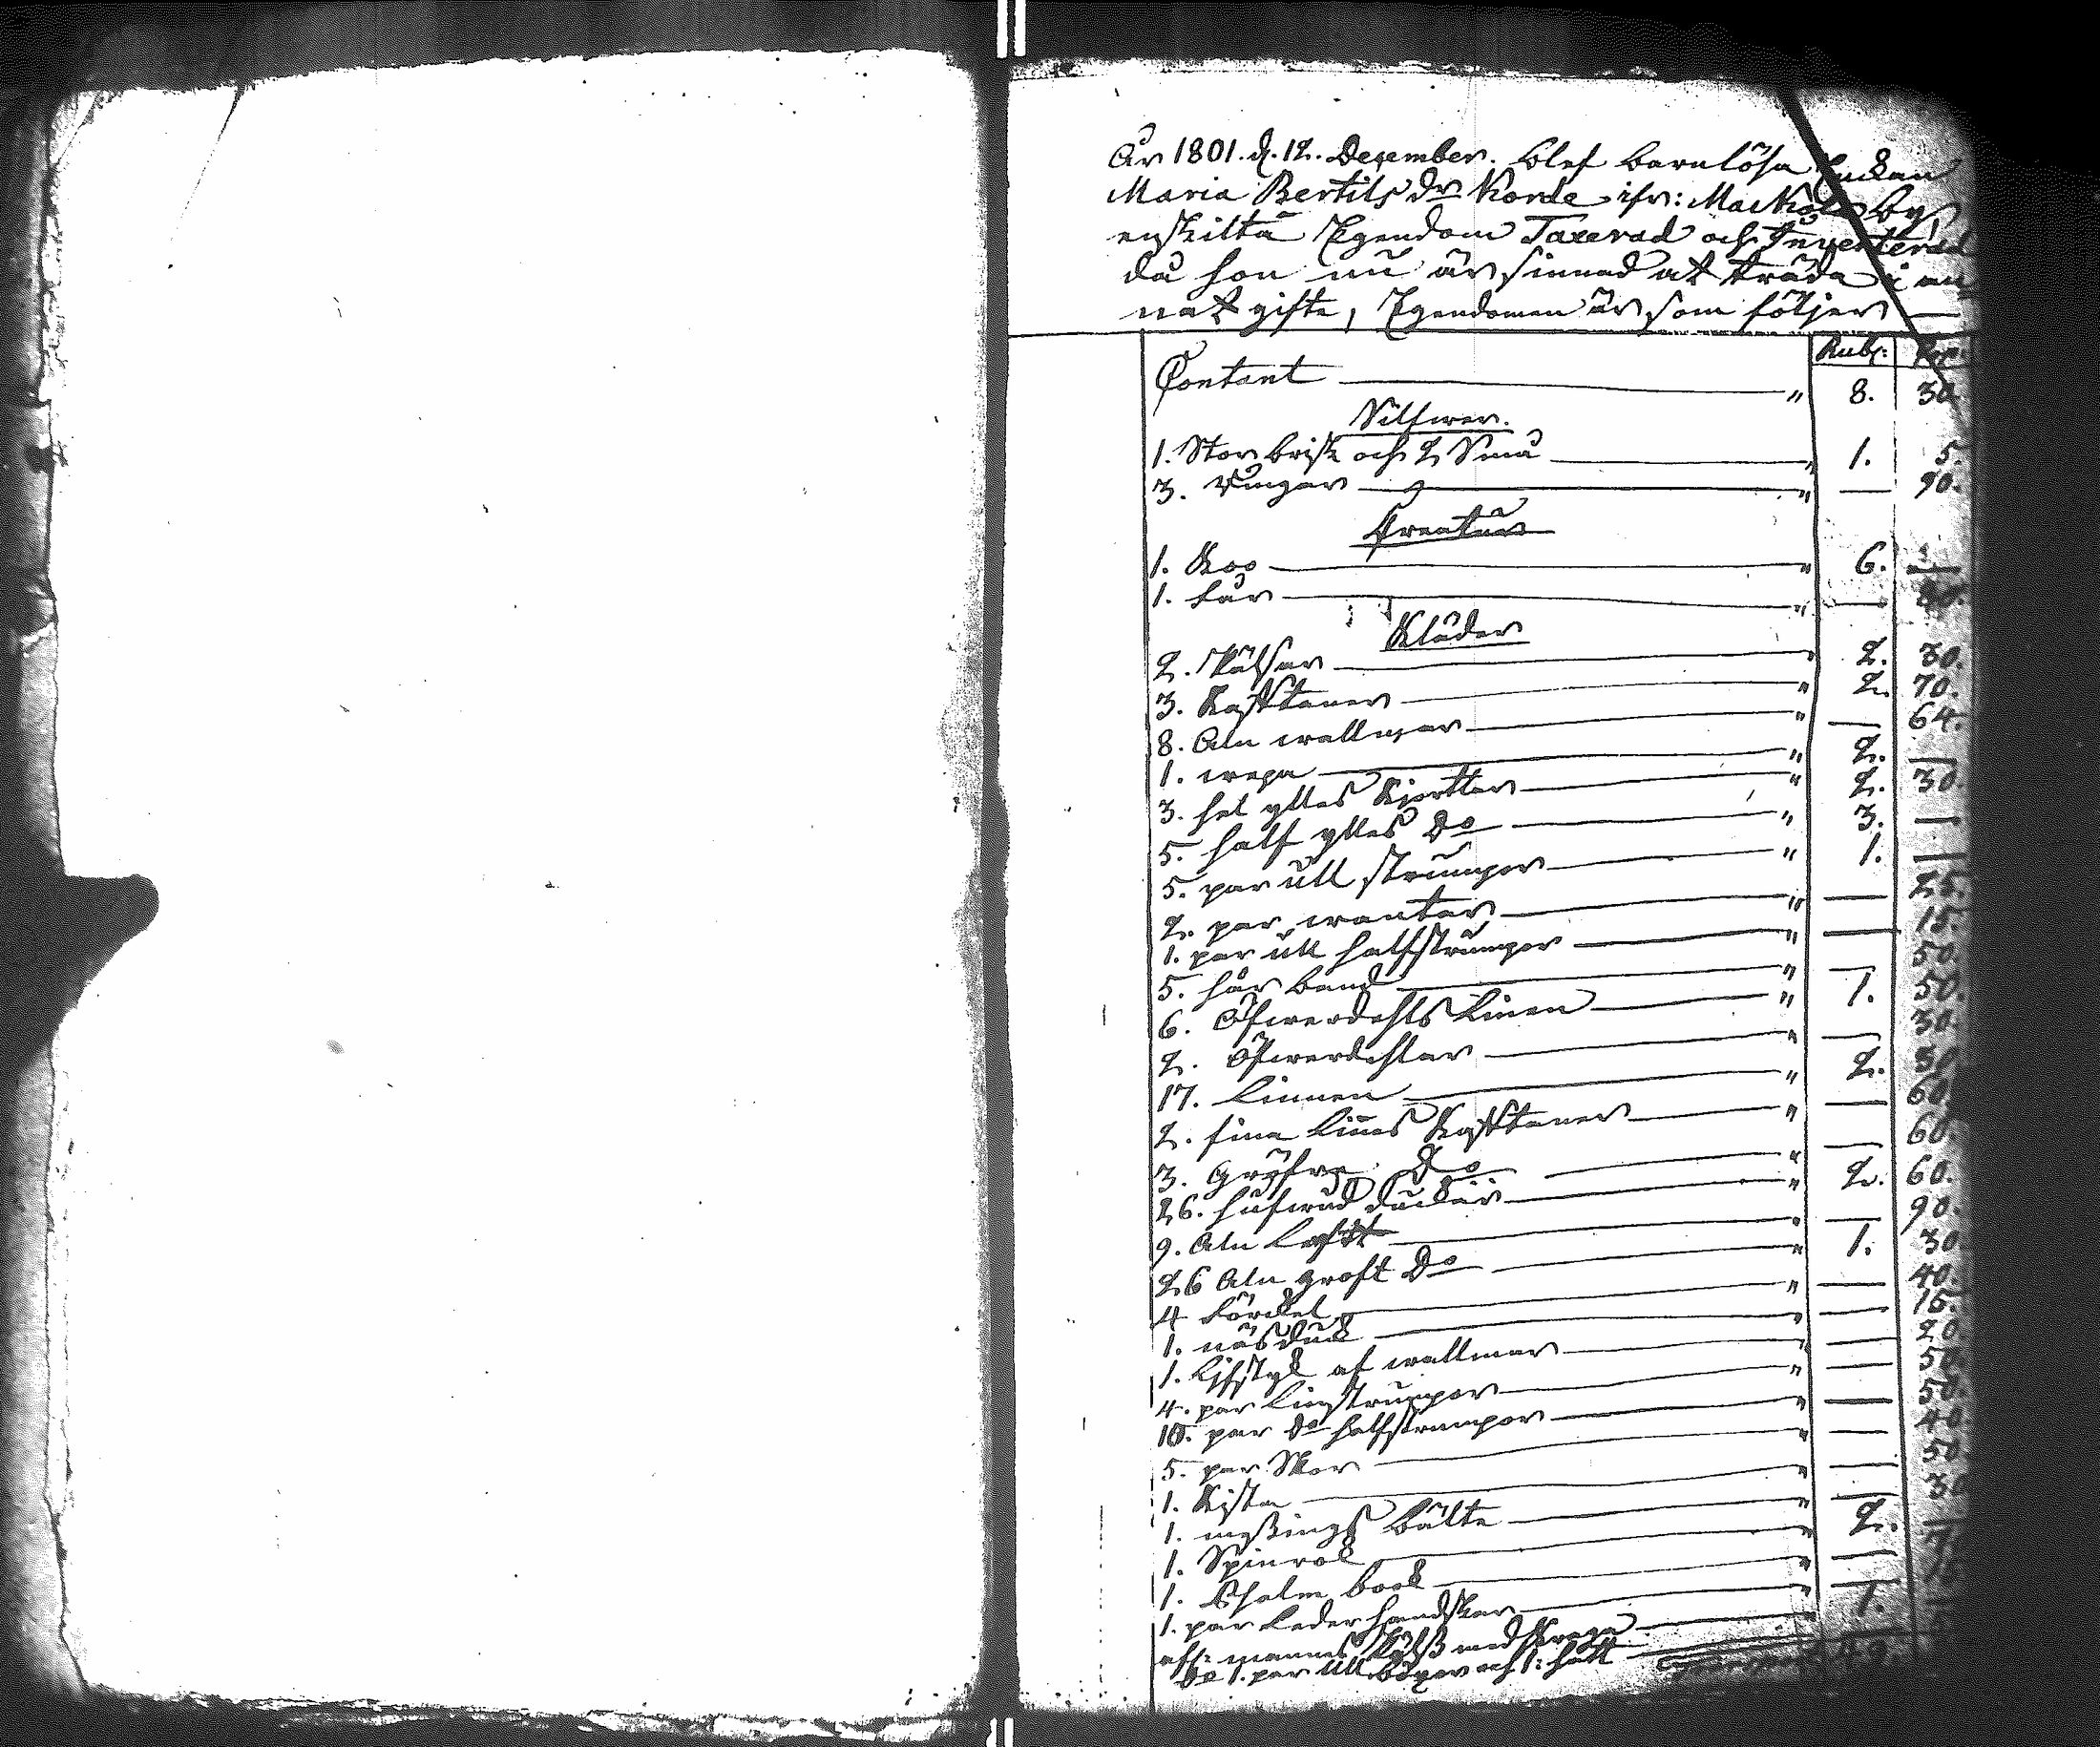 År 1801. d. 12. Desember. blef barnlösa Enckan
Maria Bertils dr Korde ifr: Macköby
enskilta Egendom Taxerad och Inventerad
då hon nu är sinnad at träda i an
nat gifte, Egendomen är som följer
Rubl:
Contant " 8. 30
Silfwer.
1. Stor brisk och 2 Små " 1. 5.
3. Ringar " — 90.
Creatur
1. Koo " 6. —
1. Får " —
Kläder
2. Pälsar " 2. 30.
3. Kasttaner " 2. 70.
8. Aln wallmar " — 64.
1. wepa " 2. —
3. hel ylles Kjorttlar " 2. 30.
5. half ylles Do " 3. —
5. par ull strumpor " 1. —
2. par wantar " — 25.
1. par ull halfstrumpor " — 15.
5. hår band " — 50.
6. Öfwerdehls Linen " 1. 50.
2. Öfwerdehlar " — 30.
17. Linnen " 2. 50
2. fina Linnes Kasttaner " — 60
3. Gröfre Do " — 60.
26. hufwud dukar " 2. 60.
9. Aln Lärft " — 90.
26 Aln groft Do " 1. 30
4 Förckel " — 40.
1. näsduk " — 15.
1. Lifstyk af wallmar " — 20.
4. par linstrumpor " — 50
10. par do halfstrumpor " — 50.
5. par Skor " — 40
1. Kista " — 50
1. mässings bälte " — 30
1. Spinrok " 2. —
1. Psalm book " —
1. par Leder handskar " —
afl: mannes Päls med krage 1.
do 1. par ull böxor och 1: hatt